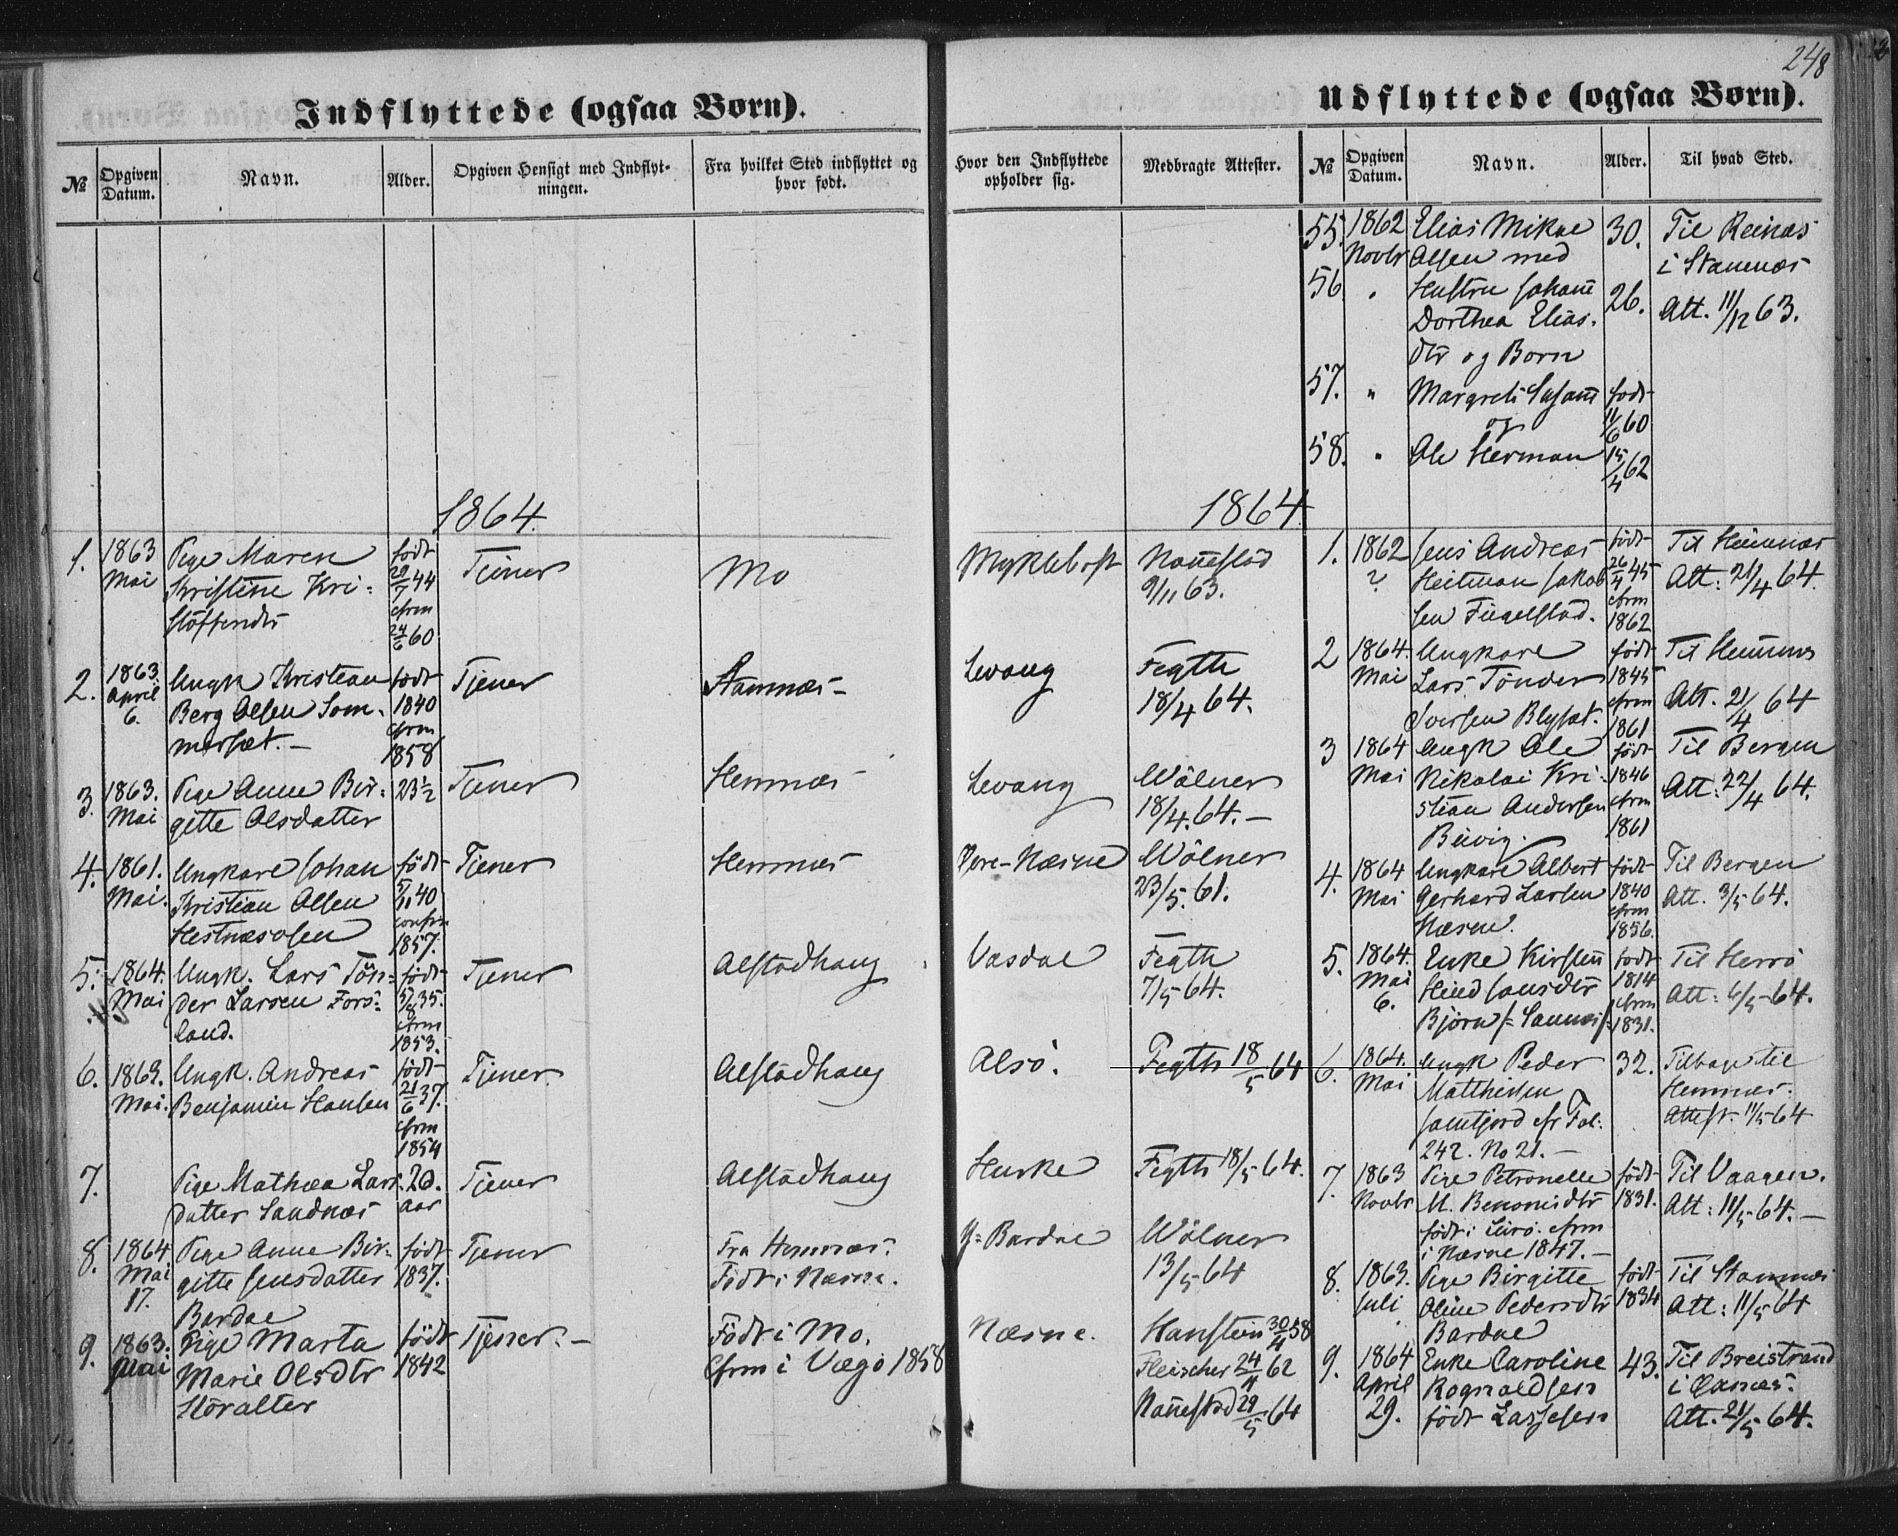 248
Indflyttede (ogsaa Børn).
Udflyttede (ogsaa Børn).
№
Opgiven Datum.
Navn.
Alder.
Opgiven Hensigt med Indflyt-
ningen.
Fra hvilket Sted indflyttet og
hvor født.
Hvor den Indflyttede
opholder sig.
Medbragte Attester.
№
Opgiven Datum.
Navn.
Alder.
Til hvad Sted.
55. 1862 Elias Mikae 30. Til Reinæs
Novbr Olsen med i Stamnæs
56. " Hustru Johane 26. Att. 11/12 63.
Dorthea Elias.
dtr og Børn
57. " Margrete Susane født
og 11/6 60
58. " Ole Herman 15/4 62
1864.
1864.
1. 1863 Pige Maren født Tjener Mo Myklebost
Mai Kristine Kri- 29/7 44 9/11 63.
stoffersdtr cfrm
24/6 60
2. 1863. Ungk Kristian født Tjener Stamnæs Levang Fegth
April Berg Olsen Som- 1840 18/4 64.
6. mersæt. cfrm
1858
3. 1863. Pige Anne Bir- 23 1/2 Tjener Hemnæs Levang Wölner
Mai gitte Olsdatter 18/4. 64.
4. 1861. Ungkare Johan født Tjener Hemnæs Wölner
Mai. Kristian Olsen 5/11 40 23/5. 61.
Hestnæsosen confrm
1857.
5. 1864. Ungk. Lars Tön- født Tjener Alstadhaug Vasdal Fegth
Mai der Larsen Fors- 35. 7/5 64.
land. cfrm
1853.
6. 1863. Ungk. Andreas født Tjener Alstadhaug Alsö. Fegth 18/5 64
Mai. Benjamin Hansen 21/6 37.
cfrm
1854
7. Pige Mathea Lars- 20. Tjener Alstadhaug Fegth 18/5 64.
datter Sandnæs aar
8. 1864 Pige Anne Bir- født Tjener Fra Hemnæs. Bardal Wölner
Mai gitte Jensdatter 1837. Født i Næsne. 13/5 64
17. Bardal
9. 1863. Pige Marta født Tjener. Født i Mo. Næsne. Hanstein 30/4 58
Mai Marie Olsdtr 1842 Cfrm i Vægö 1858 Fleischer 24/4 62
Storalter 29/5 64
1. 1862 Jens Andreas født Til Hemnæs
? Heitman Jakob- 26/4 45 Att: 21/4 64.
sen cfrm
1862
2 1864. Ungkare født Til Hemnæs
Mai Lars Tönder 1845 Att. 21/4 64
Iversen cfrm
1861
3 1864 Ungk Ole født Til Bergen
Mai Nikolai Kri- 1846 Att: 22/4 64.
stian Andersen cfrm
1861
4. 1864 Ungkare Albert født Til Bergen
Mai Gerhard Larsen 1840 Att. 3/5 64.
Næsne. cfrm
1856.
5. 1864. Enke Kirsten født Til Herrö
Mai Hind Jansdtr 1814 Att: 6/5 64.
6. Björn cfrm
1831.
6. 1864. Ungk Peder 32. Tilbage til
Mai Matthisen Hemnæs.
cfr Fol: Attest. 11/5 64
242. No 21.
7. 1863 Pige Petronelle født Til Vaagen.
Novbr M. Benonisdtr 1831. Att: 11/5 64.
født i Lurö. cfrm
i Næsne 1847.
8. 1863. Pige Birgitte født Til Stamnæs
Juli Oline Pedersdtr 1834 Att: 11/5 64
Bardal
9. 1864 Enke Caroline 43. Til Breistrand
April Rognaldsen
29. født Lassesen Att. 21/5 64.